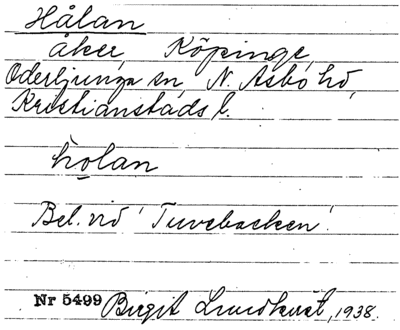 Hålan
åker, Köpinge,
Oderljunga sn N. Åsbo hd,
Kristianstads l.
holan
Bel. vid 'Tuvebacken'.
Nr 5499 Birgit Lundkvist, 1938.